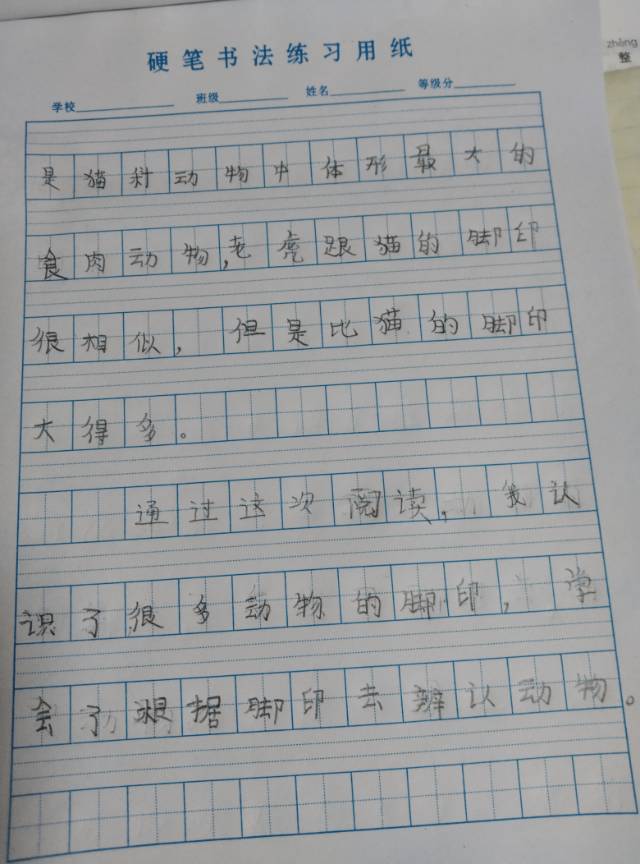 zhěng
整
硬笔书法练习用纸
学校 班级 姓名 等级分
是猫科动物中体形最大的
食肉动物,老虎跟猫的脚印
很相似,但是比猫的脚印
大得多。
通过这次阅读,我认
识了很多动物的脚印,学
会了根据脚印去辨认动物。